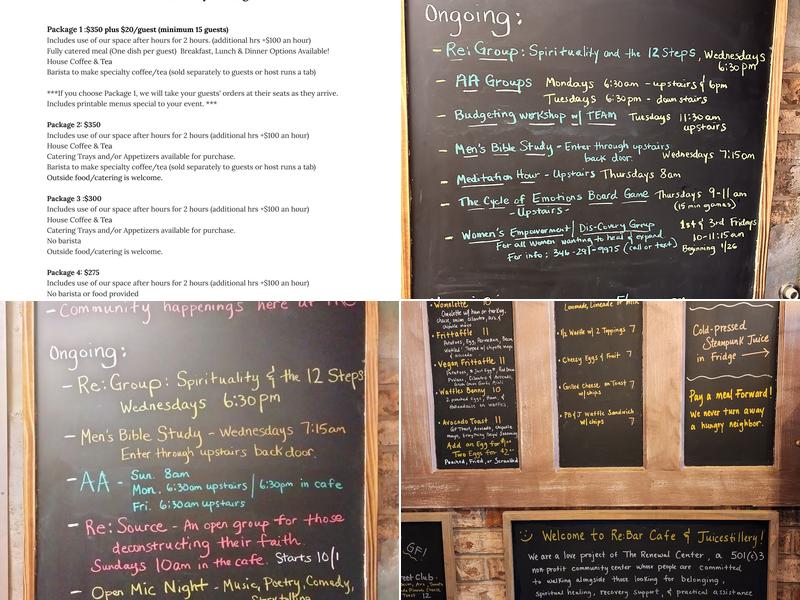 Package 1 :$350 plus $20/guest (minimum 15 guests)
Includes use of our space after hours for 2 hours. (additional hrs +$100 an hour)
Fully catered meal (One dish per guest) Breakfast, Lunch & Dinner Options Available!
House Coffee & Tea
Barista to make specialty coffee/tea (sold separately to guests or host runs a tab)
***If you choose Package 1, we will take your guests' orders at their seats as they arrive.
Includes printable menus special to your event. ***
Package 2: $350
Includes use of our space after hours for 2 hours (additional hrs +$100 an hour)
House Coffee & Tea
Catering Trays and/or Appetizers available for purchase.
Barista to make specialty coffee/tea (sold separately to guests or host runs a tab)
Outside food/catering is welcome.
Package 3 :$300
Includes use of our space after hours for 2 hours (additional hrs +$100 an hour)
House Coffee & Tea
Catering Trays and/or Appetizers available for purchase.
No barista
Outside food/catering is welcome.
Package 4: $275
Includes use of our space after hours for 2 hours (additional hrs +$100 an hour)
No barista or food provided
Ongoing:
- Re: Group: Spirituality and the 12 Steps, Wednesdays
6:30pm
- AA Groups Mondays 6:30am - upstairs & 6pm
Tuesdays 6:30pm - downstairs
- Budgeting workshop w/ TEAM Tuesdays 11:30am
upstairs
- Men's Bible Study - Enter through upstairs
back door. Wednesdays 7:15am
- Meditation Hour - Upstairs Thursdays 8am
- The Cycle of Emotions Board Game Thursdays 9-11am
- Upstairs - (15 min games)
- Women's Empowerment/Dis-Covery Group 1st & 3rd Fridays
For all women wanting to heal & expand 10-11:15am
For info: 346-291-9975 (call or text) Beginning 1/26
- Community happenings here at THE
Ongoing:
- Re: Group: Spirituality & the 12 Steps
Wednesdays 6:30pm
- Men's Bible Study - Wednesdays 7:15am
Enter through upstairs back door.
- AA - Sun. 8am
Mon. 6:30am upstairs / 6:30pm in cafe
Fri. 6:30am upstairs
- Re: Source - An open group for those
deconstructing their faith.
Sundays 10am in the cafe. Starts 10/1
- Open Mic Night - Music, Poetry, Comedy,
Storytelling
• Womelette 10
Omelette w/ ham or turkey,
• Frittaffle 11
Potatoes, Egg, Parmesan, Bacon,
& avocado
• Vegan Frittaffle 11
• Waffles Benny 10
2 poached Eggs, Ham, &
Hollandaise on waffles.
• Avocado Toast 11
GF Toast, Avocado, chipotle
mayo, Everything Bagel Seasoning
Add an Egg for $1
Two Eggs for $2
Poached, Fried, or Scrambled
Lemonade, Limeade or Milk
• 1/2 Waffle w/ 2 Toppings 7
• Cheesy Eggs & Fruit 7
• Grilled cheese on Toast 7
w/ chips
• PB & J Waffle Sandwich
w/ chips 7
Cold-pressed
Steampunk Juice
in Fridge →
Pay a meal Forward!
We never turn away
a hungry neighbor.
GF!
Club -
Toast 12
Welcome to Re:Bar Cafe & Juicestillery!
We are a love project of The Renewal Center, a 501(c)3
non profit community center whose people are committed
to walking alongside those looking for belonging,
spiritual healing, recovery support, & practical assistance